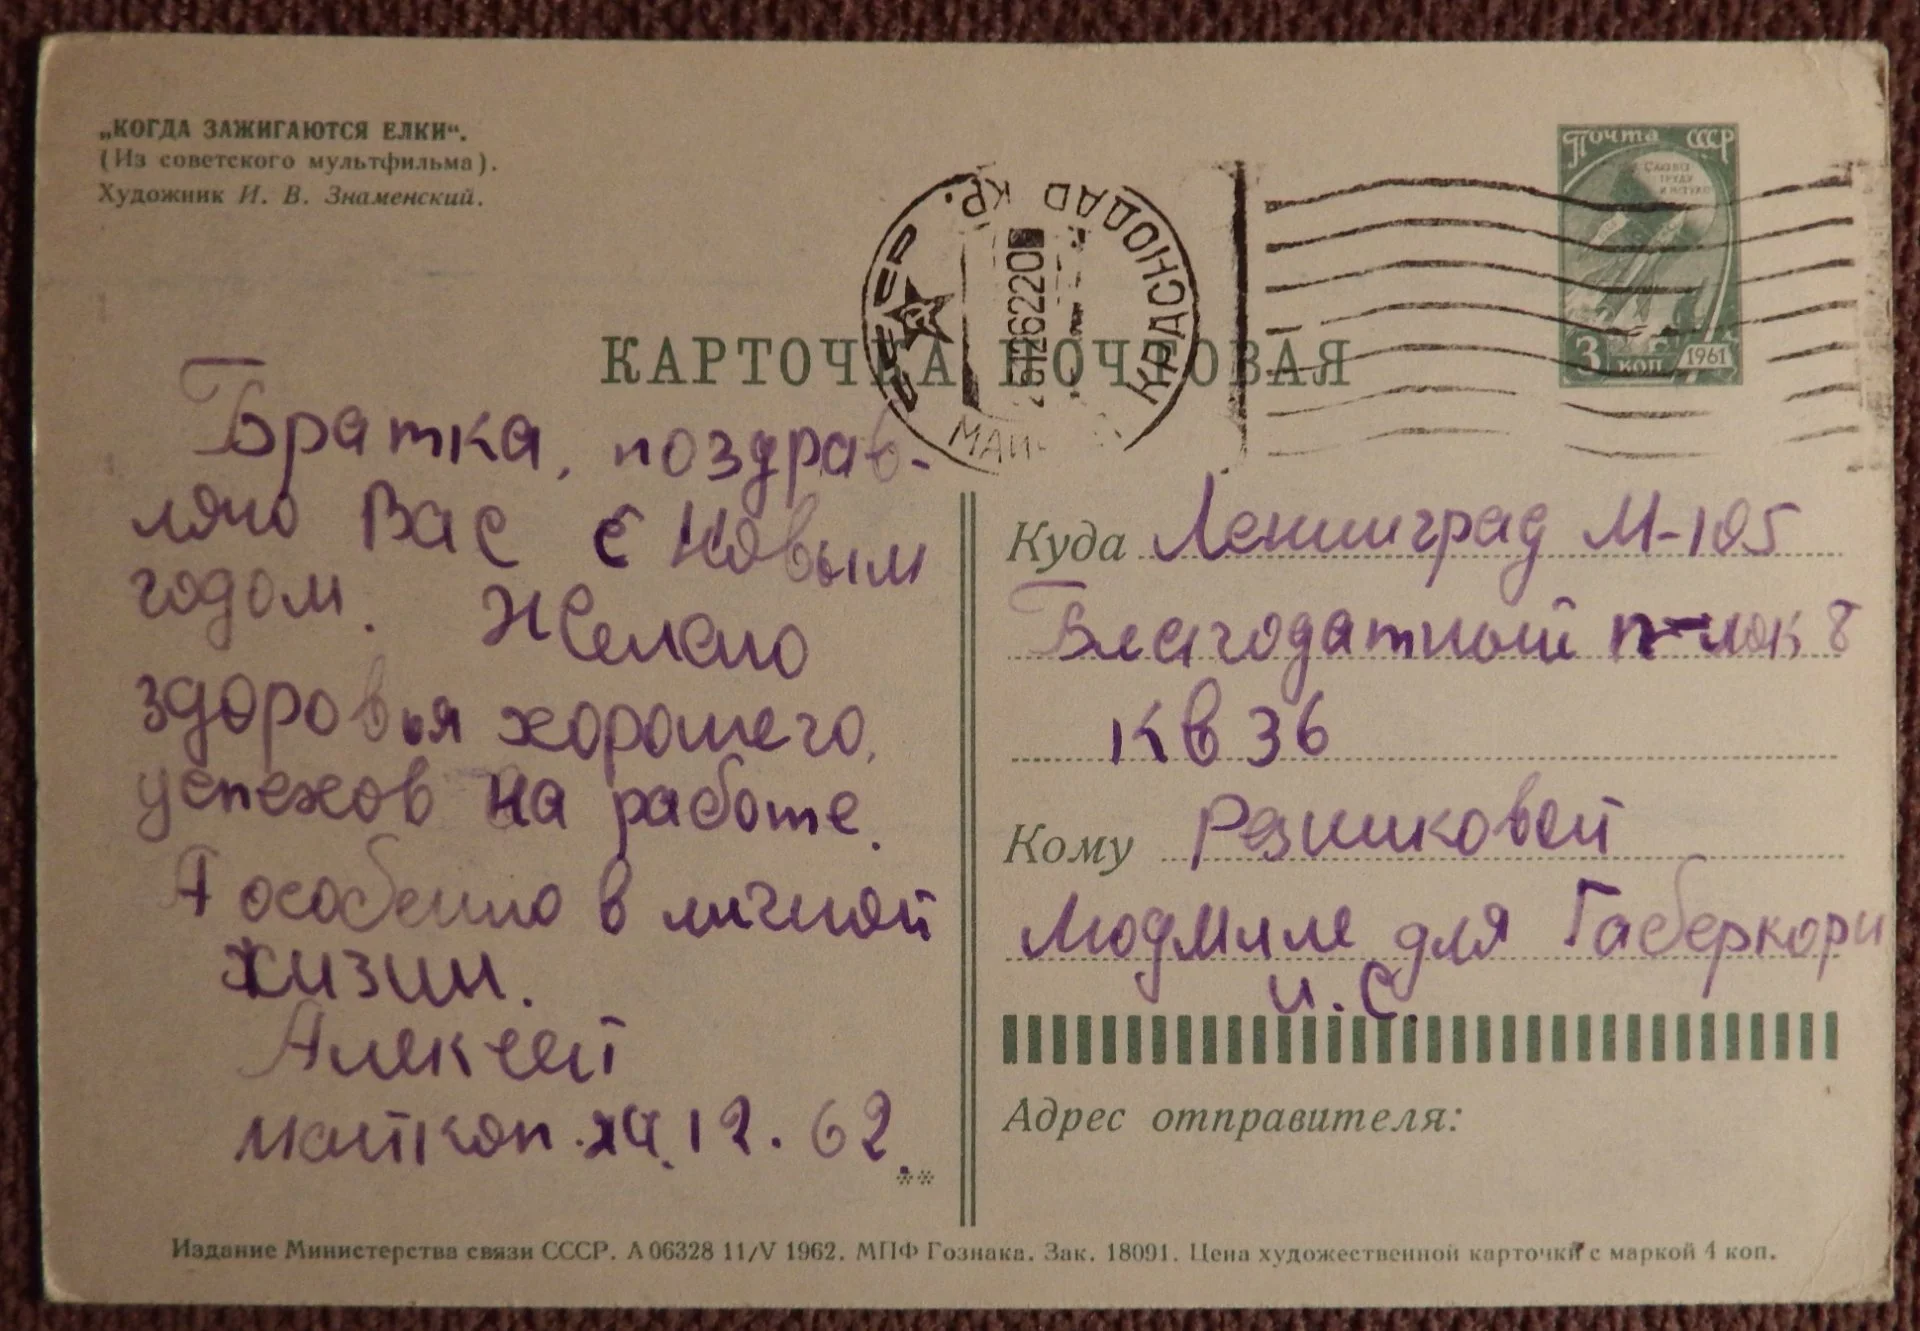 „КОГДА ЗАЖИГАЮТСЯ ЕЛКИ“.
(Из советского мультфильма).
Художник И. В. Знаменский.
Почта СССР
СЛАВА
ТРУДУ
И НАУКЕ
3 КОП 1961
КРАСНОДАР КР.
КАРТОЧКА ПОЧТОВАЯ
Братка, поздрав-
ляю Вас с Новым
годом. Желаю
здоровья хорошего,
успехов на работе.
А особенно в личной
жизни.
Алексей
майкоп 24.12.62.
**
Куда Ленинград М-105
Благодатный п-лок 8
кв 36
Кому Резниковой
Людмиле для Габеркорн
И.С.
Адрес отправителя:
Издание Министерства связи СССР. А 06328 11/V 1962. МПФ Гознака. Зак. 18091. Цена художественной карточки с маркой 4 коп.